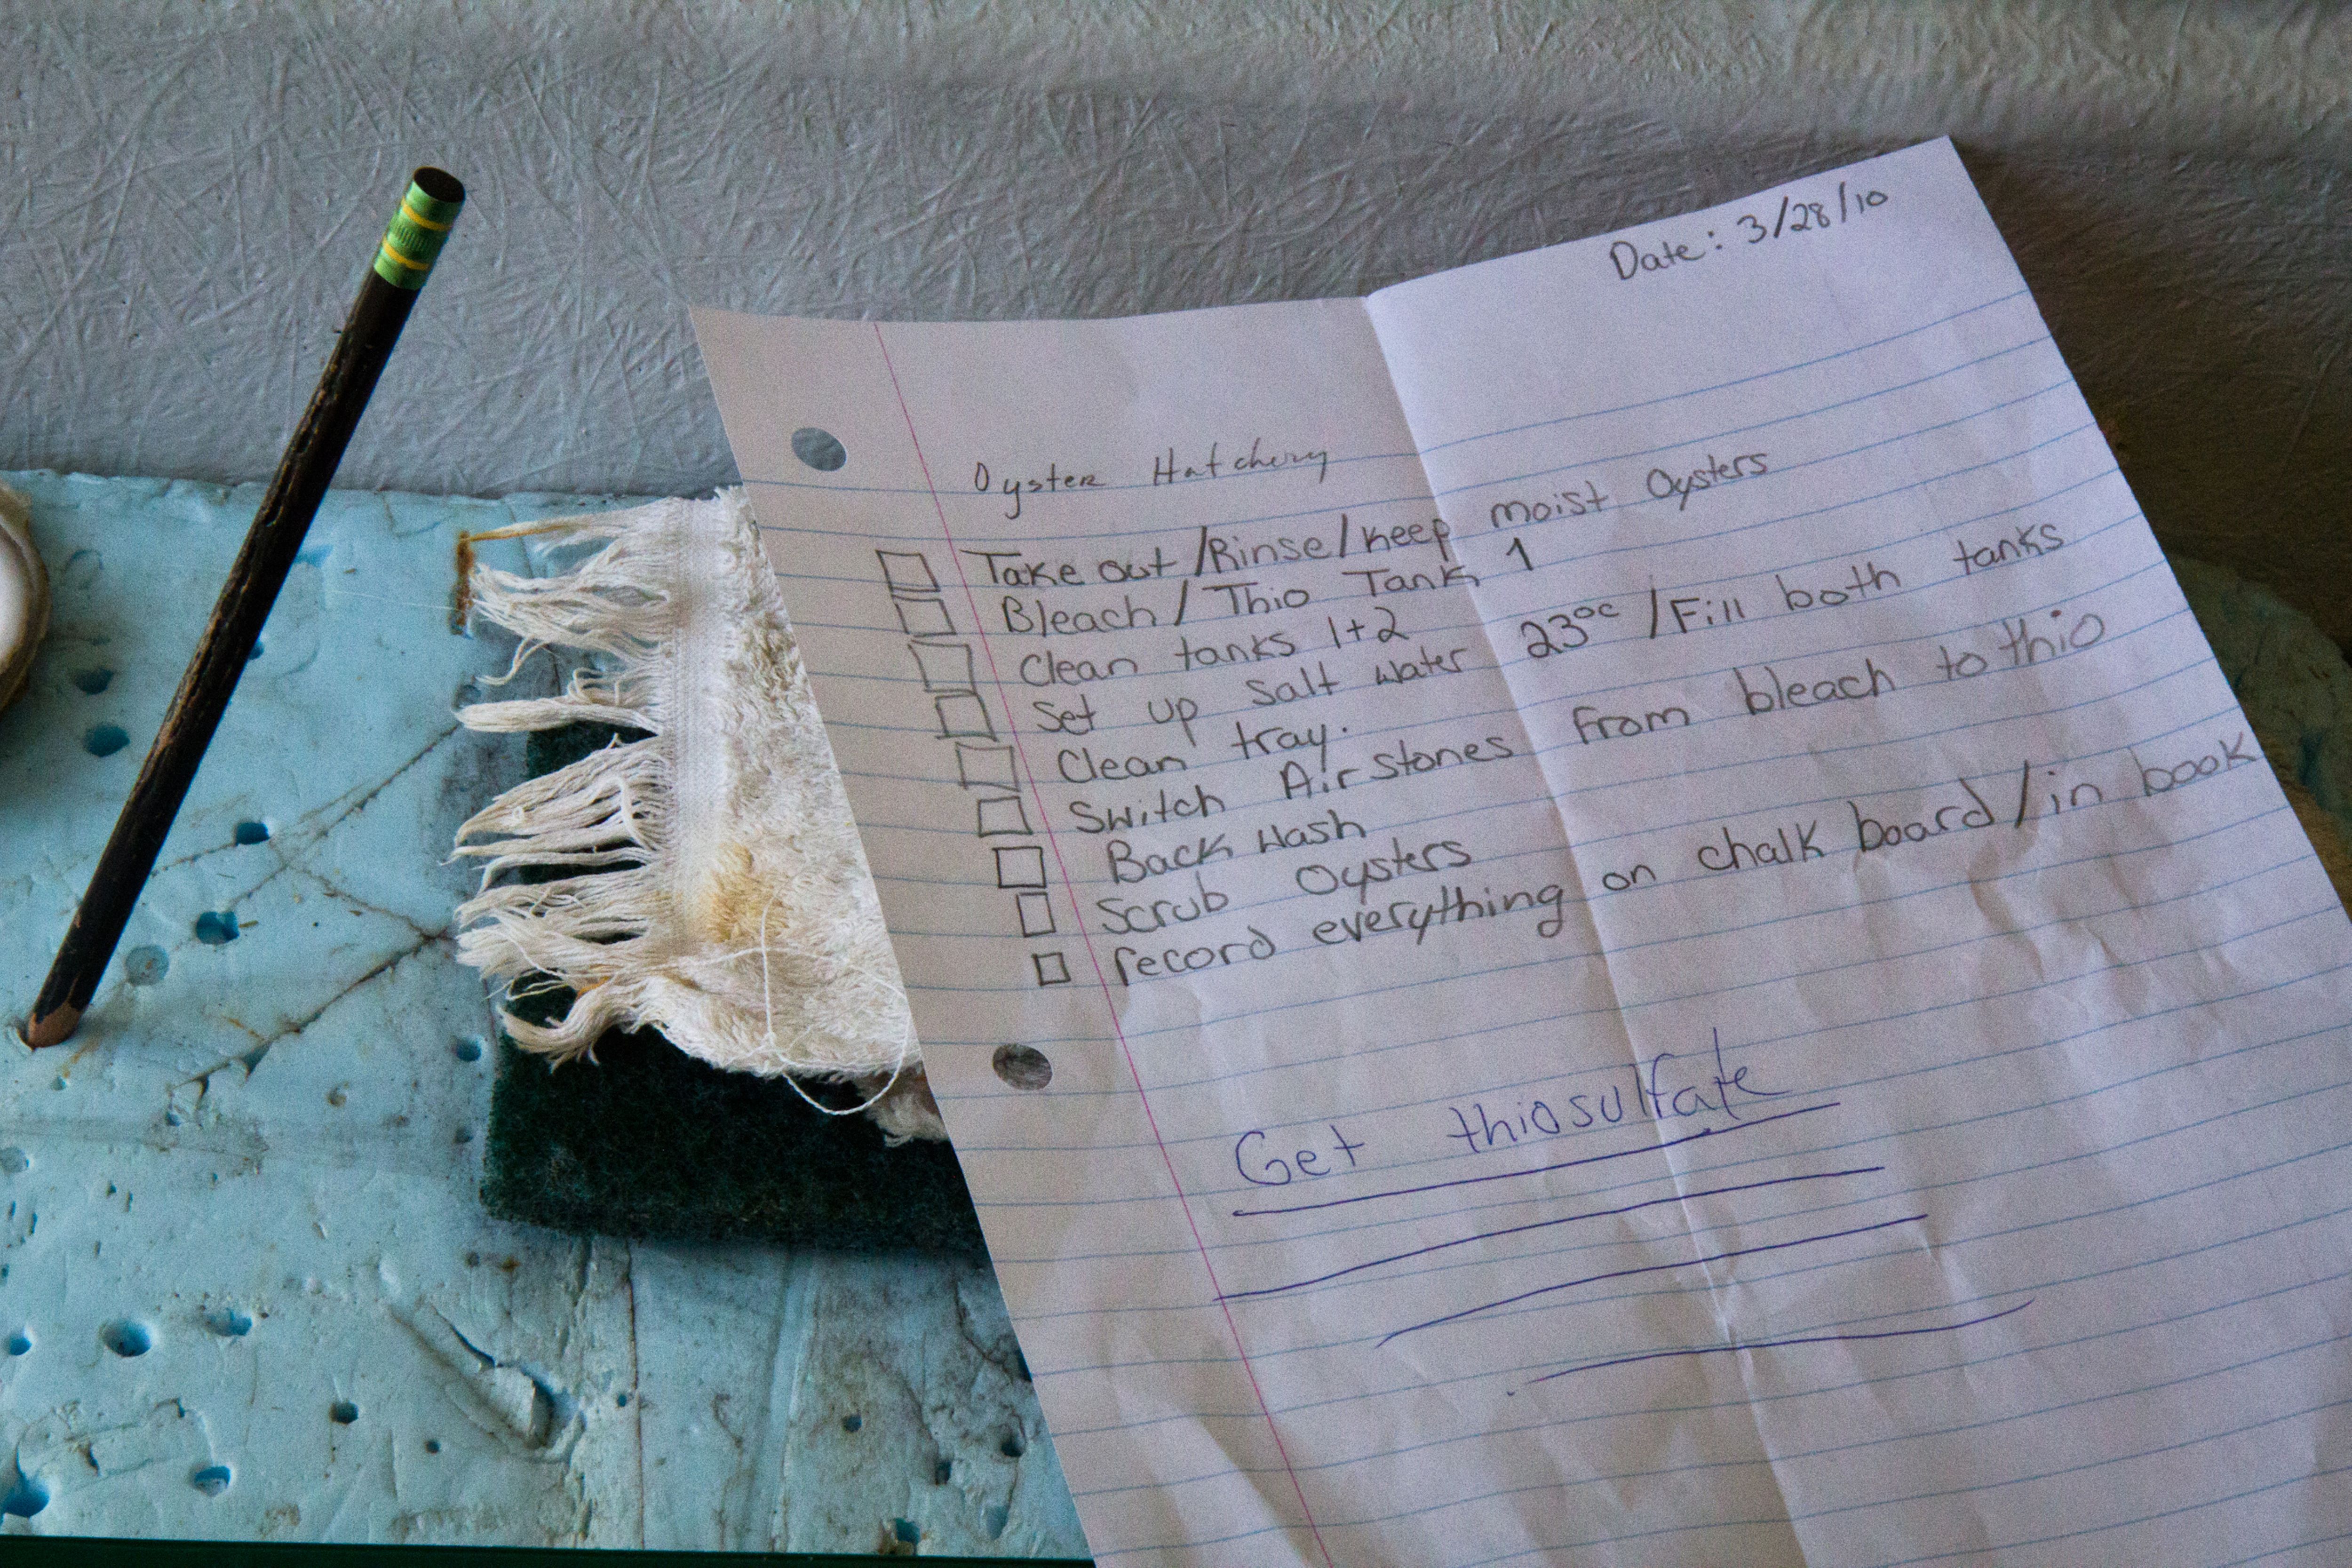 Date: 3/28/10
Oyster Hatchery
Take out/Rinse/keep moist Oysters
Bleach/Thio Tank 1
Clean tanks 1+2
Set up salt water 23°C/Fill both tanks
Clean tray.
Switch Air stones from bleach to thio
Back wash
Scrub Oysters
record everything on chalk board/in book
Get thiosulfate